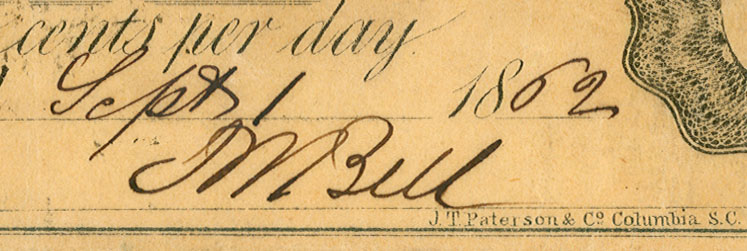 cents per day
Sept 1 1862
JM Bell
J.T. Paterson & Co Columbia S.C.